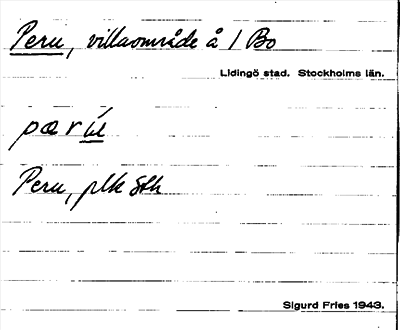 Peru, villaområde å 1 Bo
Lidingö stad. Stockholms län.
pær
Peru, plk Sth
Sigurd Fries 1943.